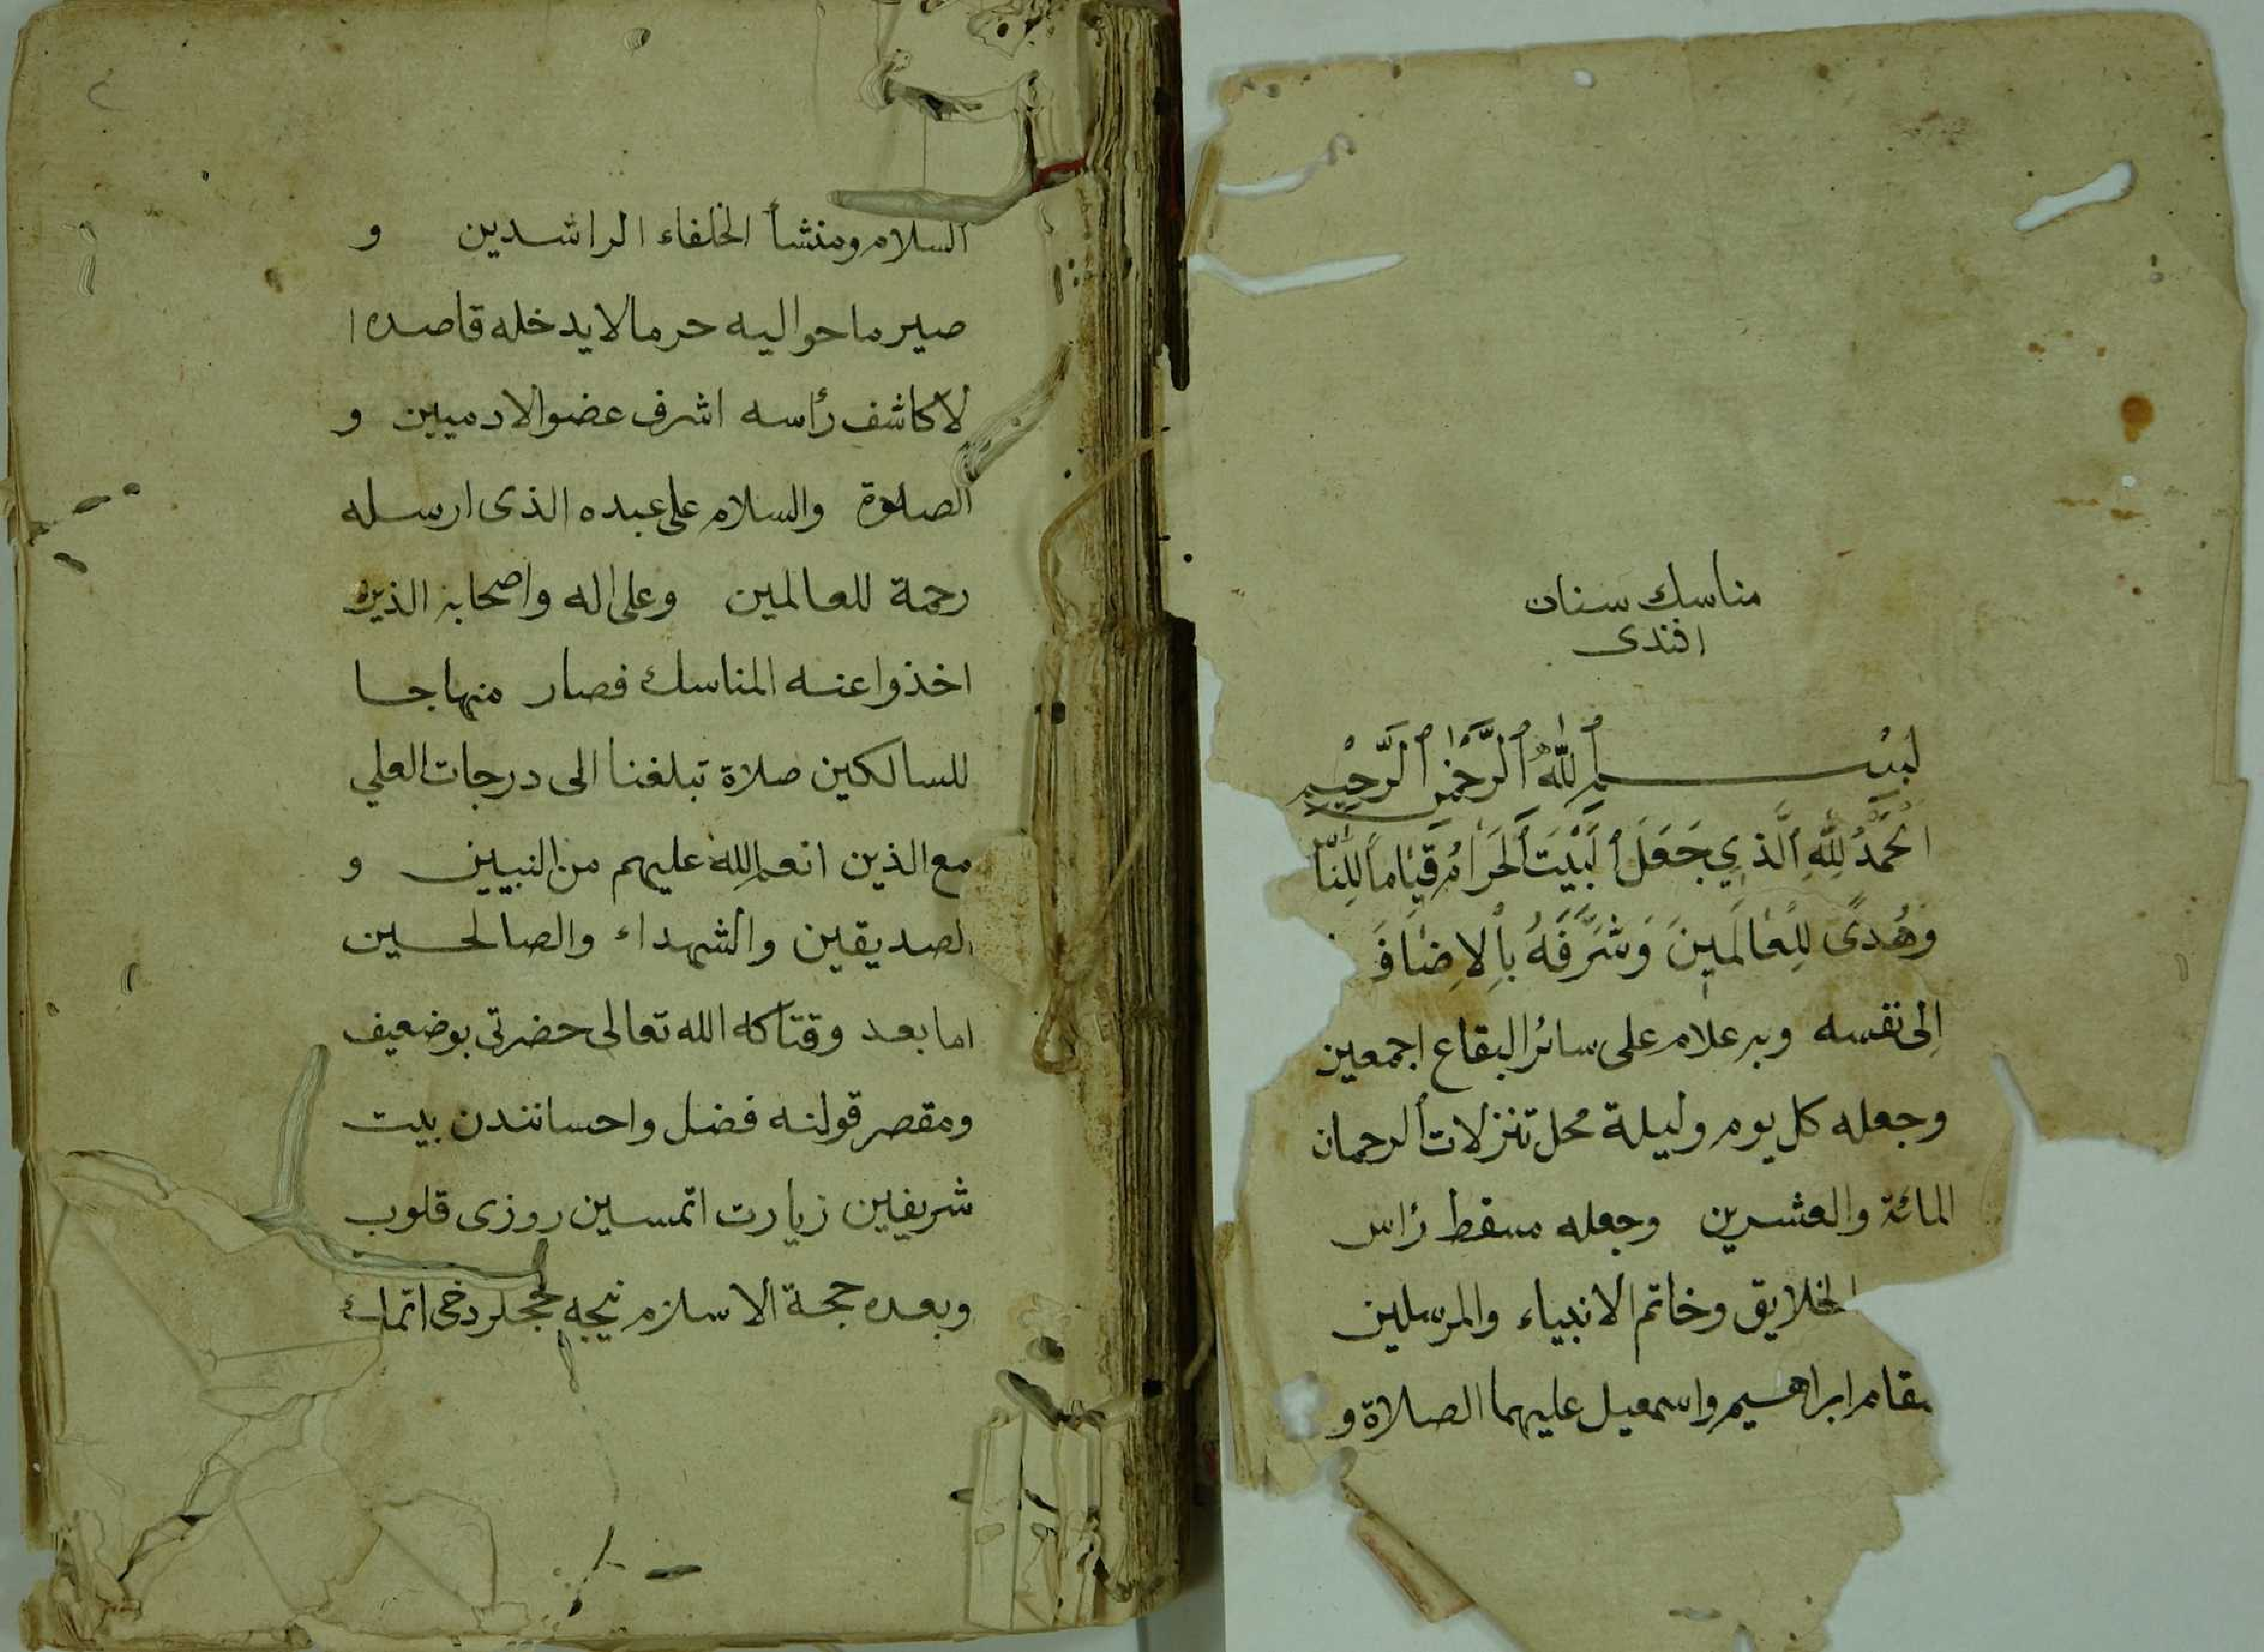 مناسك سنان
افندى
بسم ٱللّٰه ٱلرَّحْمٰن ٱلرَّحِيْم
اَلْحَمْدُ لِلّٰهِ ٱلَّذِي جَعَلَ ٱلْبَيْتَ ٱلْحَرَامَ قِيَامًا لِلنَّا
وَهُدًى لِلْعَالَمِينَ وَشَرَّفَهُ بِاْلاِضَافَ
اِلى نفسه وبر علام على سائر البقاع اجمعين
وجعله كل يوم وليلة محل تنزلات الرحمان
المائة والعشرين وجعله مسقط رأس
الخلايق وخاتم الانبياء والمرسلين
مقام ابراهيم واسمعيل عليهما الصلاة و
السلام ومنشأ الخلفاء الراشدين و
صير ما حواليه حرما لا يدخله قاصده ا
لا كاشف رأسه اشرف عضو الادميين و
الصلوة والسلام على عبده الذى ارسله
رحمة للعالمين وعلى اله واصحابه الذين
اخذوا عنه المناسك فصار منهاجا
للسالكين صلاة تبلغنا الى درجات العلي
مع الذين انعم الله عليهم من النبيين و
الصديقين والشهداء والصالحين
اما بعد وقتاكه الله تعالى حضرتى بو ضعيف
ومقصر قولنه فضل واحسانندن بيت
شريفين زيارت اتمسين روزى قلوب
وبعده حجة الاسلام نيجه حجلر دخى اتمك
٢